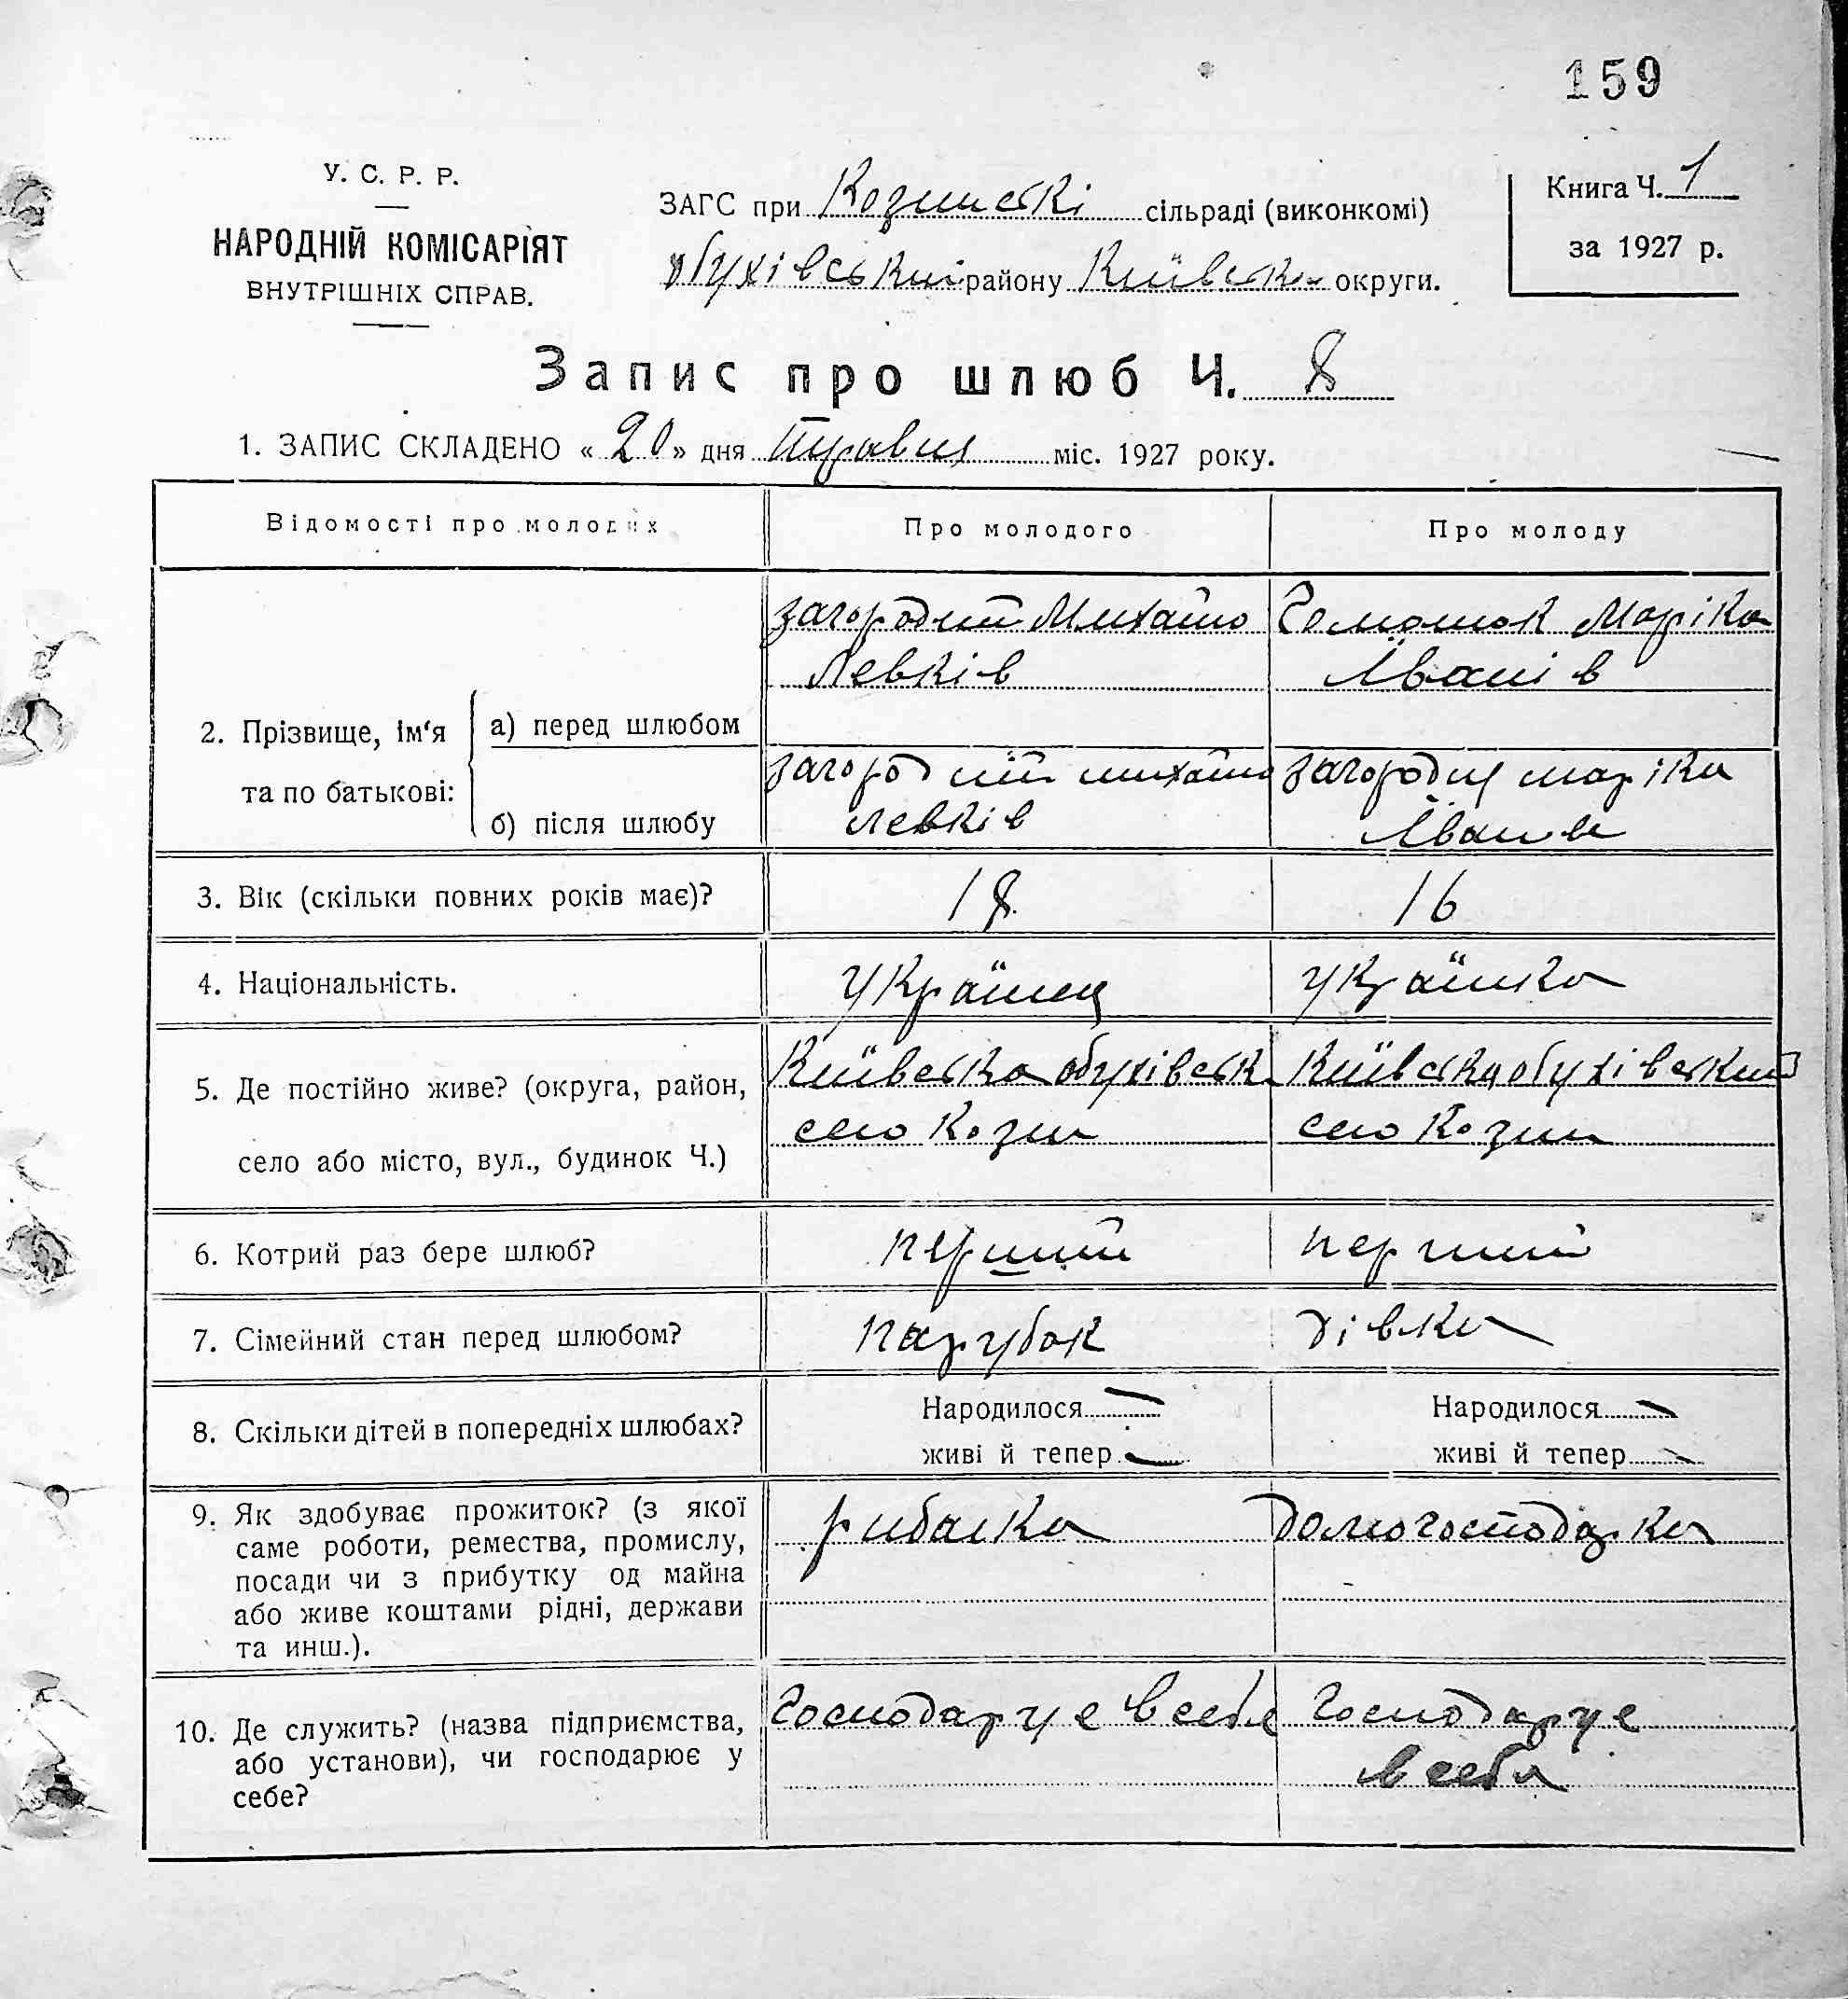 159
У. С. Р. Р.
НАРОДНІЙ КОМІСАРІЯТ
ВНУТРІШНІХ СПРАВ.
ЗАГС при Козинські сільраді (виконкомі)
Обухівський району Київська округи.
Книга Ч. 1
за 1927 р.
Запис про шлюб Ч. 8
1. ЗАПИС СКЛАДЕНО « 20 » дня Травня міс. 1927 року.
Відомості про молодих
Про молодого
Про молоду
2. Прізвище, ім'я та по батькові:
а) перед шлюбом
Загородній Михайло
Левків
Маріка
Іванів
б) після шлюбу
Загородній Михайло
Левків
Загородня Маріка
Іванів
3. Вік (скільки повних років має)?
18
16
4. Національність.
Українец
Українка
5. Де постійно живе? (округа, район,
село або місто, вул., будинок Ч.)
Київська обухівськ
село Козин
Київська обухівський
село Козин
6. Котрий раз бере шлюб?
перший
перший
7. Сімейний стан перед шлюбом?
парубок
дівка
8. Скільки дітей в попередніх шлюбах?
Народилося —
живі й тепер —
Народилося —
живі й тепер —
9. Як здобуває прожиток? (з якої
саме роботи, ремества, промислу,
посади чи з прибутку од майна
або живе коштами рідні, держави
та инш.).
рибалка
домогосподарка
10. Де служить? (назва підприємства,
або установи), чи господарює у
себе?
Господарує в себе
Господарує
в себе